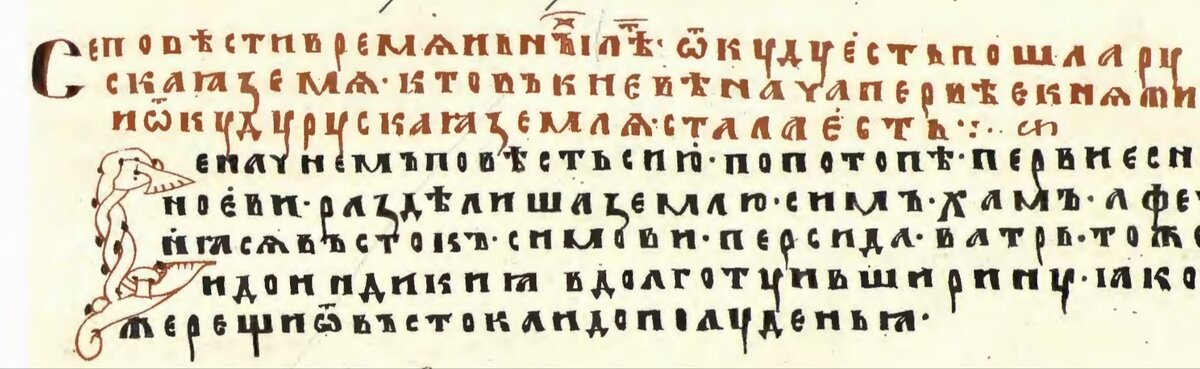 Се повѣсти времѧньнъіⷯ лѣⷮ· ѿкуду е́сть пошла ру
скаꙗ ꙁемѧ· кто въ кневѣ нача первѣе кнѧжи
и ѿкуду рускаꙗ ꙁемлѧ· стала е́сть ·:··
Се начнемъ повѣсть сию̀· по потопѣ· первие сн
ное́ви· раꙁдѣлиша ꙁемлю· симъ· хамъ· афе
и́ ꙗсѧ въстокъ· симови· персида· ватрь· тоже
и до индикиꙗ в долготу и в ширину· ꙗко
же рещи ѿ въстока и до полуденьꙗ·